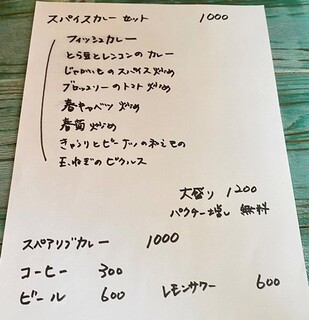 スパイスカレー セット 1000
フィッシュカレー
とら豆とレンコンの カレー
じゃがいもの スパイス 炒め
ブロッコリーの トマト 炒め
春キャベツ 炒め
春菊 炒め
きゅうりとピーナッツの和えもの
玉ねぎの ピクルス
大盛り 1200
パクチー増し 無料
スペアリブカレー 1000
コーヒー 300
ビール 600 レモンサワー 600